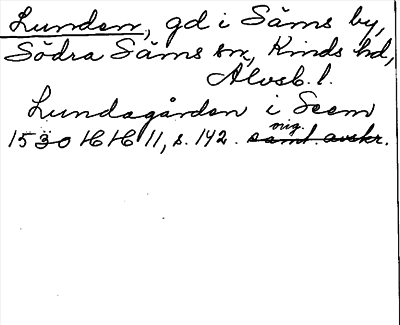 Lunden, gd i Säms by,
Södra Säms sn, Kinds hd,
Älvsb. l.
Lundagården i Seem
orig.
1530 16 16 11, s. 142. saml. avskr.